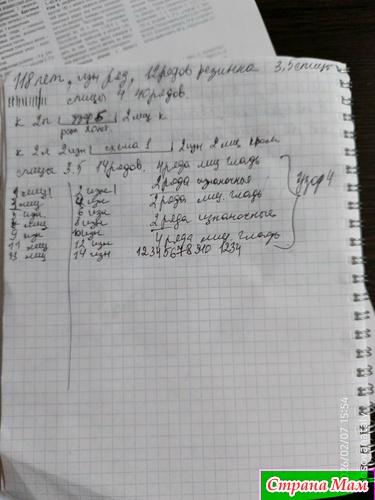 118 пет, изн ряд, 12 рядов резинка 3,5 спицы
спицы 4 40 рядов.
к 2л узор 5 2 лиц к
к 2л 2изн схема 1 2изн 2 лиц кром
спицы 3.5 14 рядов. 4 ряда лиц гладь
1 лиц 2 изн 2 ряда изнаночные
3 лиц 4 изн 2 ряда лиц. гладь
5 изн 6 изн
7 лиц 8 изн 2 ряда изнаночные
9 изн 10 изн 4 ряда лиц. гладь
11 лиц 12 изн
13 лиц 14 изн 12345678910 1234
узор 4
2026/02/07 15:54
Страна Мам